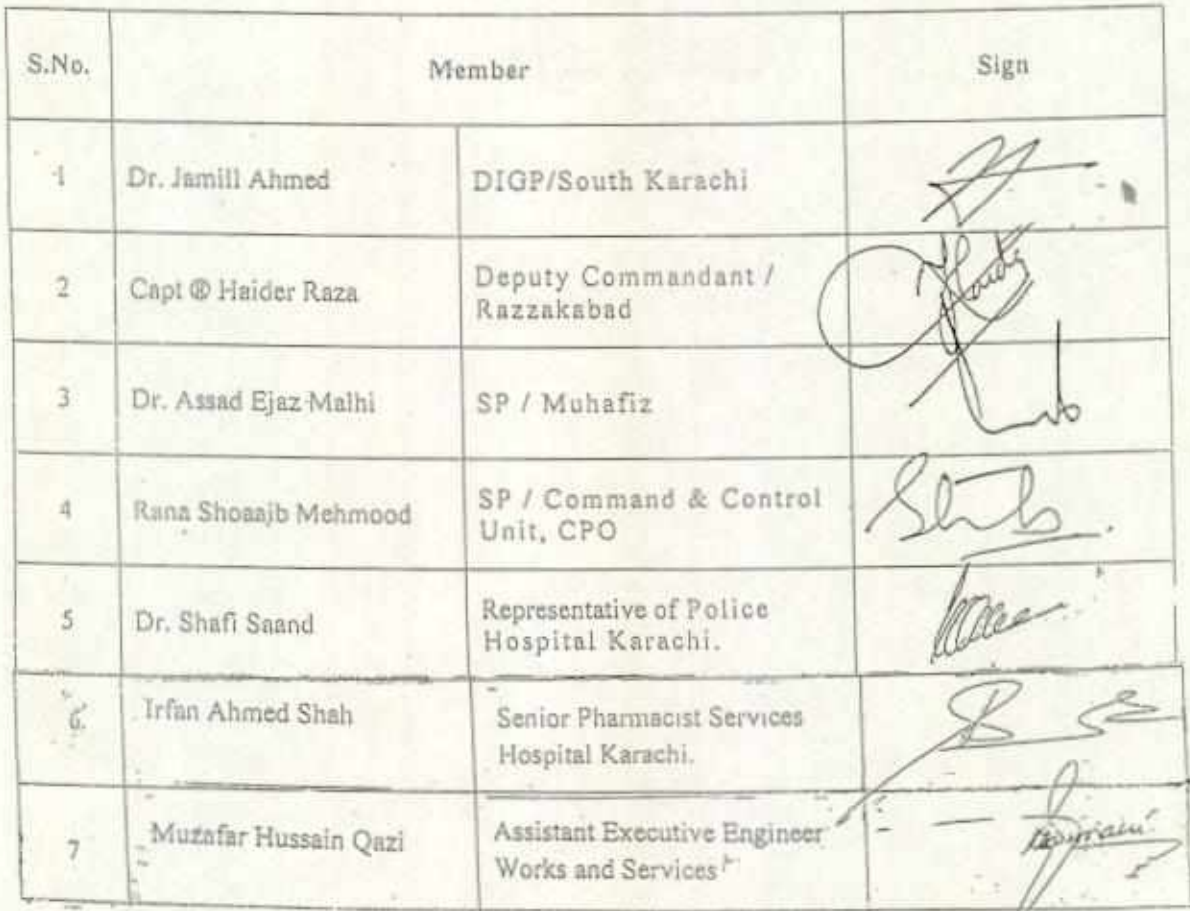 S.No. Member Sign
1 Dr. Jamill Ahmed DIGP/South Karachi
2 Capt ® Haider Raza Deputy Commandant /
Razzakabad
3 Dr. Assad Ejaz Malhi SP / Muhafiz
4 Rana Shoaajb Mehmood SP / Command & Control
Unit, CPO
5 Dr. Shafi Saand Representative of Police
Hospital Karachi.
6. Irfan Ahmed Shah Senior Pharmacist Services
Hospital Karachi.
7 Muzafar Hussain Qazi Assistant Executive Engineer
Works and Services